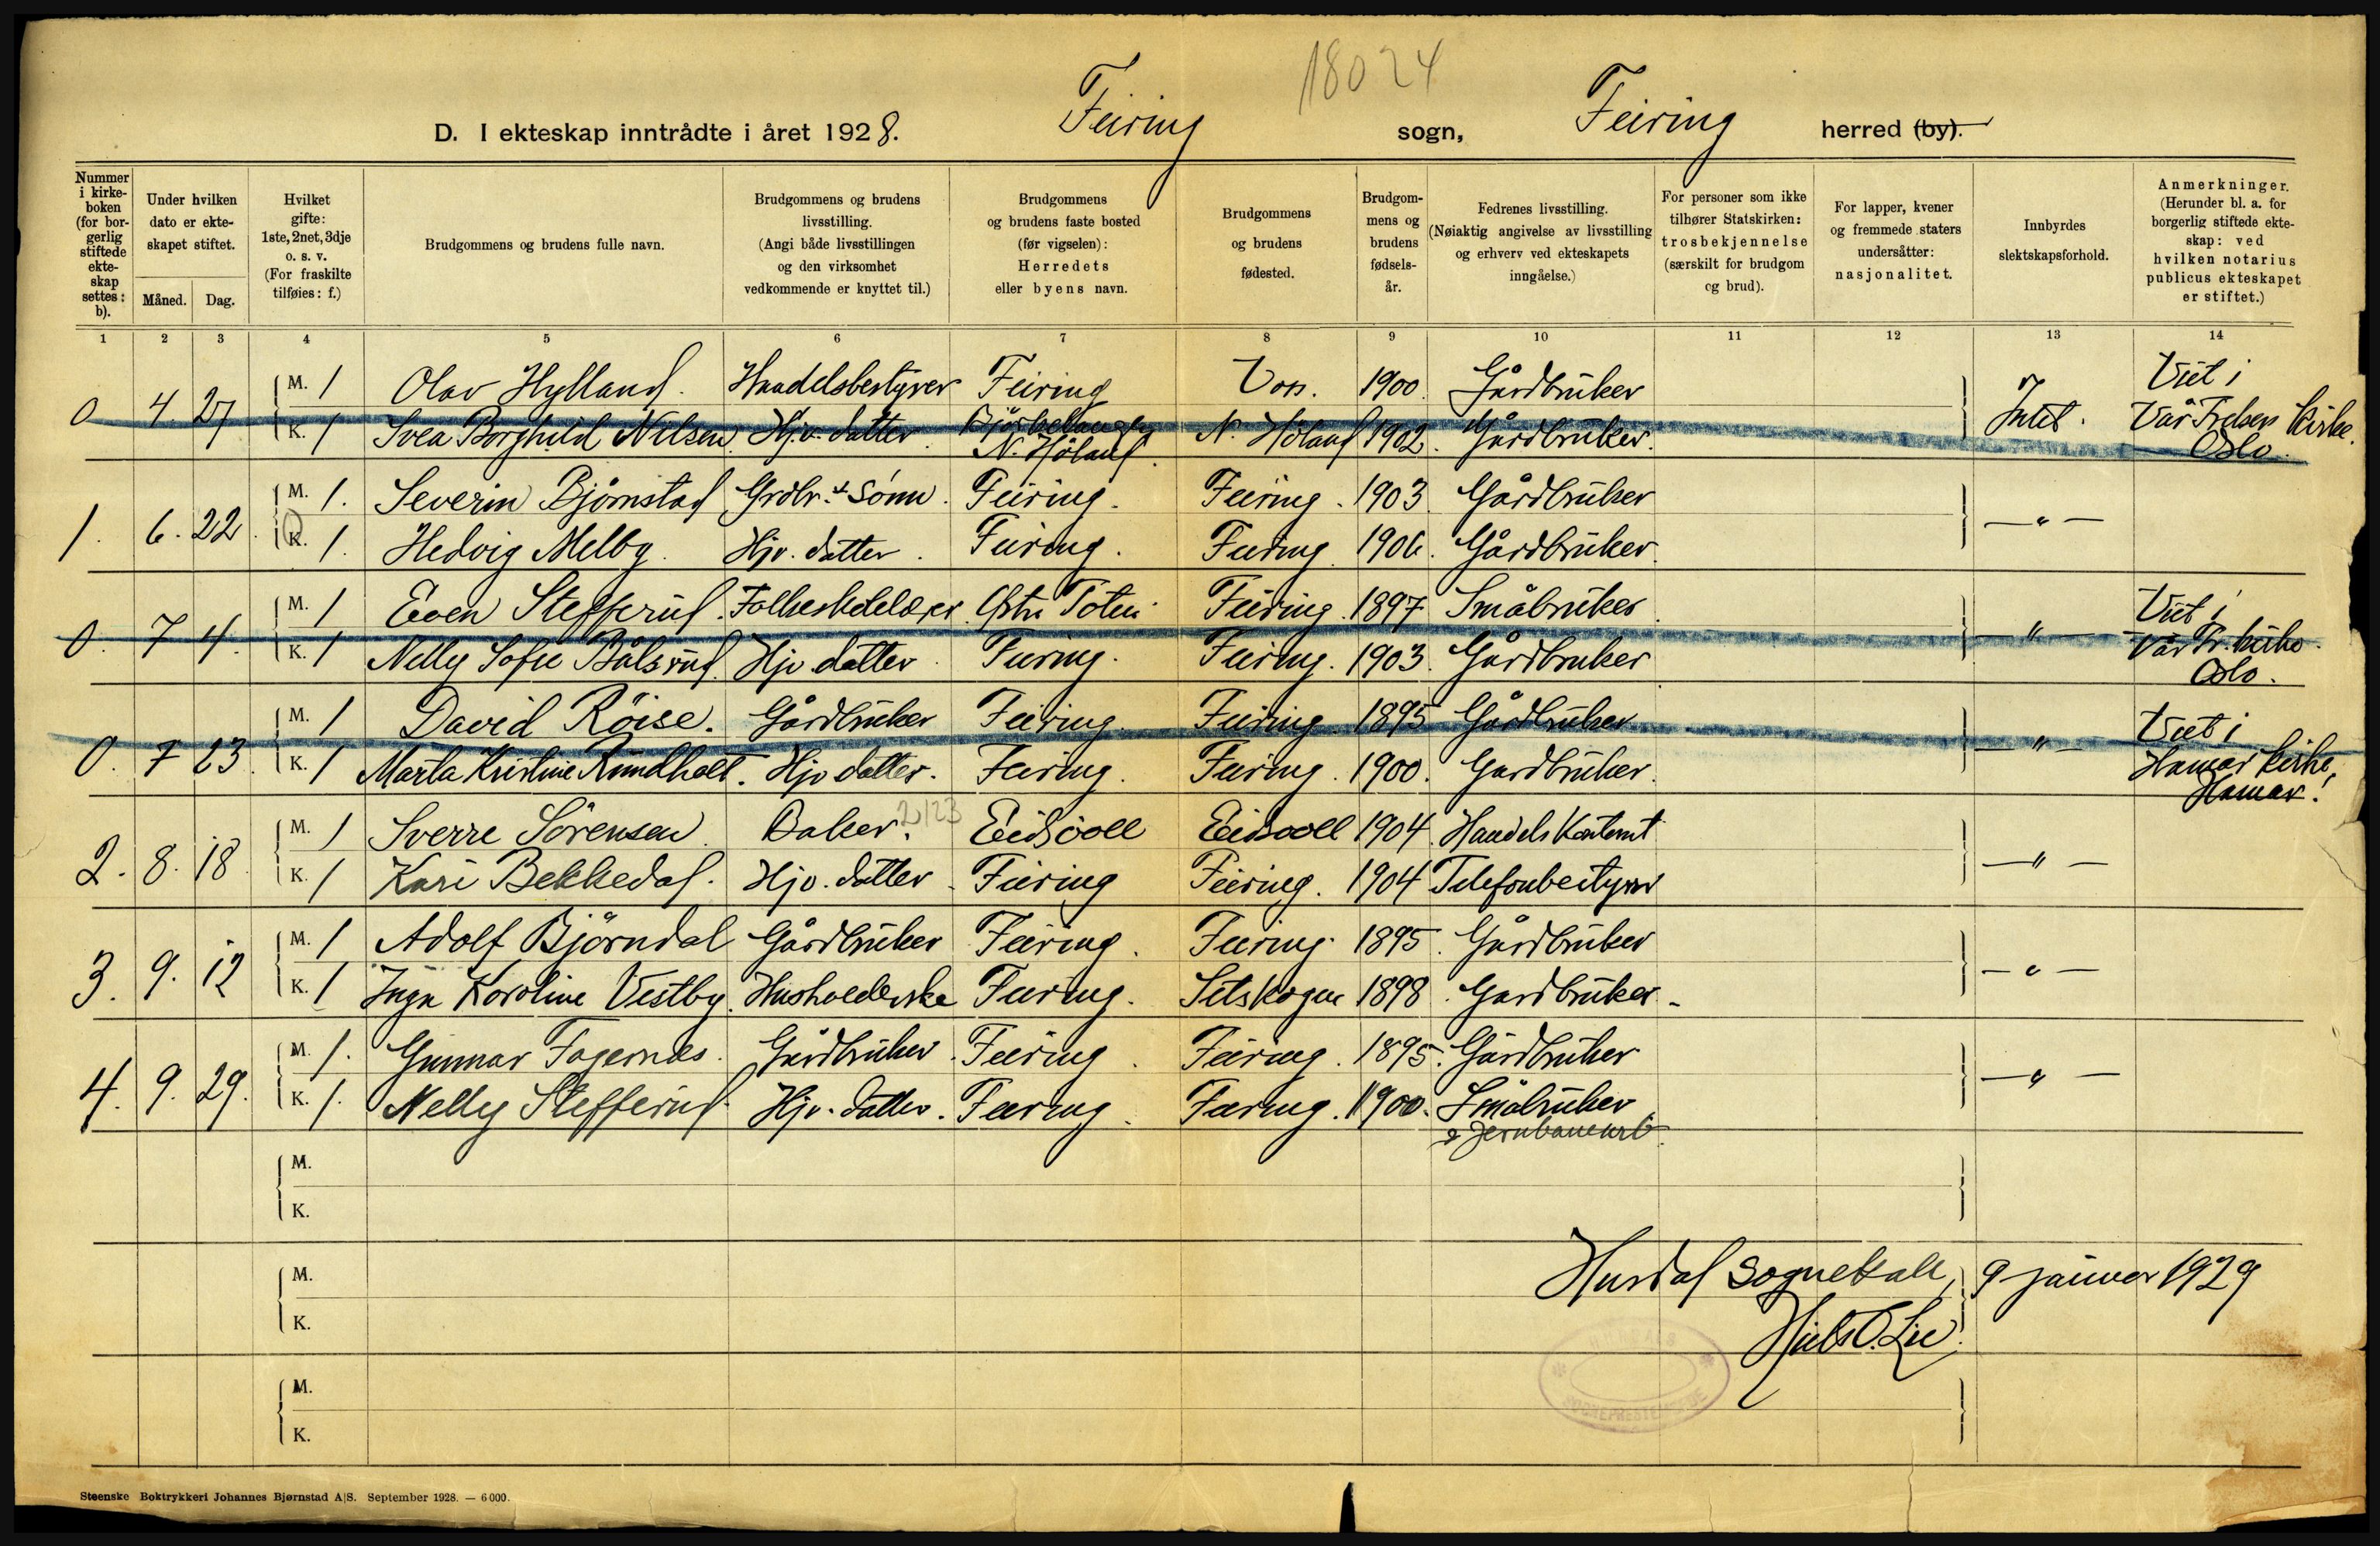 18024
D. I ekteskap inntrådte i året 1928. Feiring sogn, Feiring herred (by).
Nummer i kirke-boken (for bor-gerlig stiftede ekte-skap settes: b).
Under hvilken dato er ekte-skapet stiftet.
Måned. Dag.
Hvilket gifte: 1ste, 2net, 3dje o. s. v. (For fraskilte tilføies: f.)
Brudgommens og brudens fulle navn.
Brudgommens og brudens livsstilling. (Angi både livsstillingen og den virksomhet vedkommende er knyttet til.)
Brudgommens og brudens faste bosted (før vigselen): Herredets eller byens navn.
Brudgommens og brudens fødested.
Brudgom-mens og brudens fødsels-år.
Fedrenes livsstilling. (Nøiaktig angivelse av livsstilling og erhverv ved ekteskapets inngåelse.)
For personer som ikke tilhører Statskirken: trosbekjennelse (særskilt for brudgom og brud).
For lapper, kvener og fremmede staters undersåtter: nasjonalitet.
Innbyrdes slektskapsforhold.
Anmerkninger. (Herunder bl. a. for borgerlig stiftede ekte-skap: ved hvilken notarius publicus ekteskapet er stiftet.)
1 2 3 4 5 6 7 8 9 10 11 12 13 14
0 4. 27 M. 1 Olav Hylland. Handelsbestyrer Feiring Voss. 1900. Gårdbruker Intet. Viet i Vår Frelsers Kirke. Oslo.
K. 1 Svea Borghild Nilsen. Hjv. datter. N. Höland. N. Höland 1902. Gårdbruker.
1. 6. 22. M. 1. Severin Björnstad Grdbr. sönn. Feiring. Feiring. 1903. Gårdbruker — " —
K. 1. Hedvig Melby. Hjv. datter. Feiring. Feiring. 1906. Gårdbruker.
0. 7 4. M. 1 Even Stefferud. Folkeskolelærer. Östre Toten. Feiring. 1897 Småbruker. — " — Viet i Vår Fr. kirke. Oslo.
K. 1 Nelly Sofie Bålsrud. Hjv datter. Feiring. Feiring. 1903. Gårdbruker
0. 7 23. M. 1 David Röise. Gårdbruker Feiring. Feiring 1895 Gårdbruker — " — Viet i Hamar kirke, Hamar!
K. 1 Marta Kristine Rundholt. Hjv datter. Feiring. Feiring. 1900. Gardbruker.
2. 8. 18. M. 1 Sverre Sörensen. Baker. 2/23 Eidsvoll Eidsvoll 1904. Handels Kontorist — " —
K. 1 Kari Bekkedal. Hjv. datter. Feiring Feiring. 1904 Telefonbestyrer
3. 9. 12 M. 1 Adolf Björndal Gårdbruker Feiring. Feiring. 1895. Gårdbruker — " —
K. 1 Inga Karoline Vestby. Husholderske Feiring. Setskogen 1898. Gardbruker.
4. 9. 29. M. 1. Gunnar Fagernes. Gårdbruker. Feiring. Feiring. 1895. Gårdbruker — " —
K. 1. Nelly Stefferud. Hjv. datter. Feiring. Feiring. 1900. Småbruker
& Jernbanearb.
M.
K.
M.
Hurdal sognekall, 9 januar 1929
K.
M.
K.
Steenske Boktrykkeri Johannes Bjørnstad A|S. September 1928. — 6000.